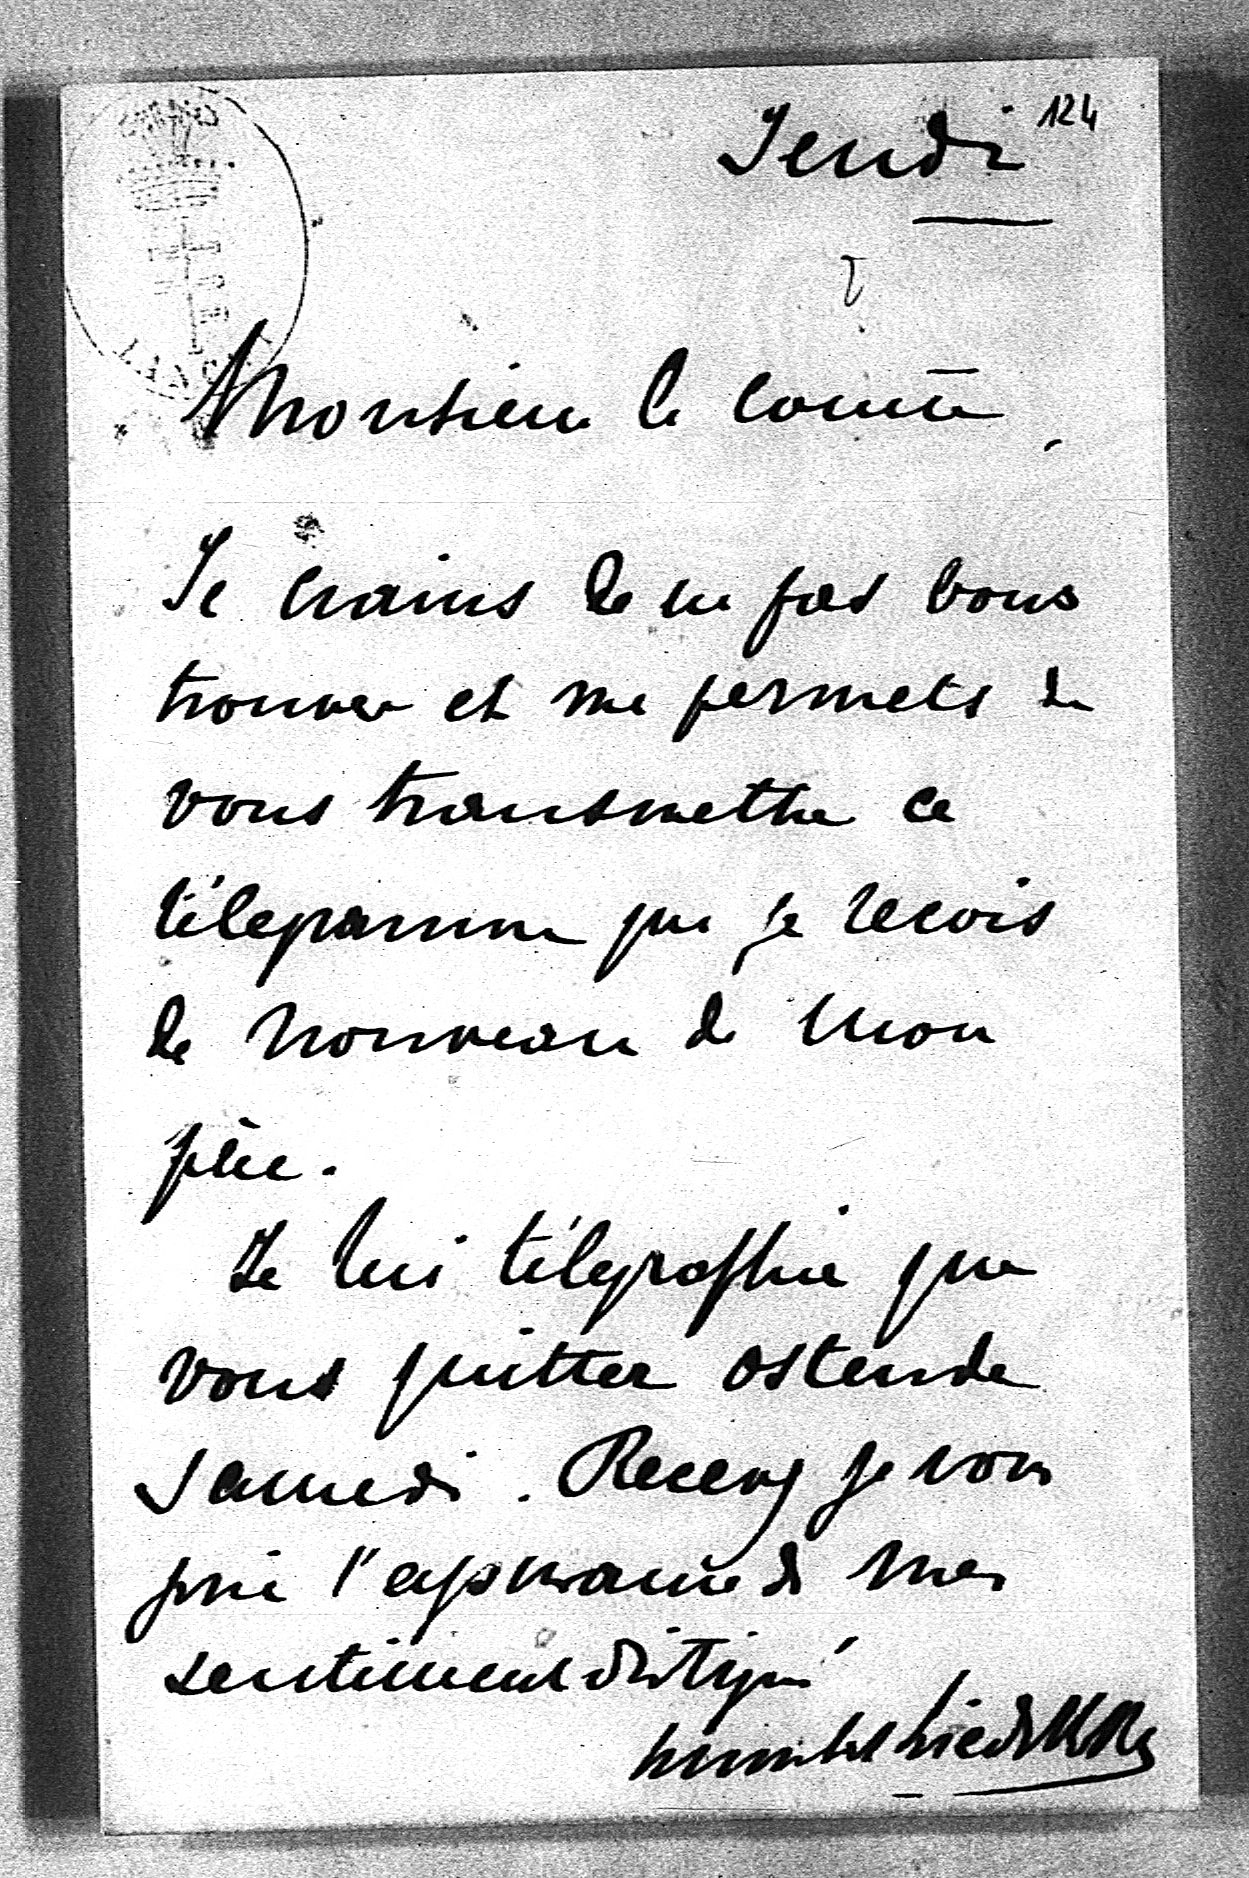 124
Jeudi
Monsieur le comte,
Je crains de ne pas vous
trouver et me permets de
vous transmettre ce
télégramme que je recois
de nouveau de mon
père.
Je lui télégraphie que
vous quittez Ostende
samedi. Recevez je vous
prie l'assurance de mes
sentiments distingués